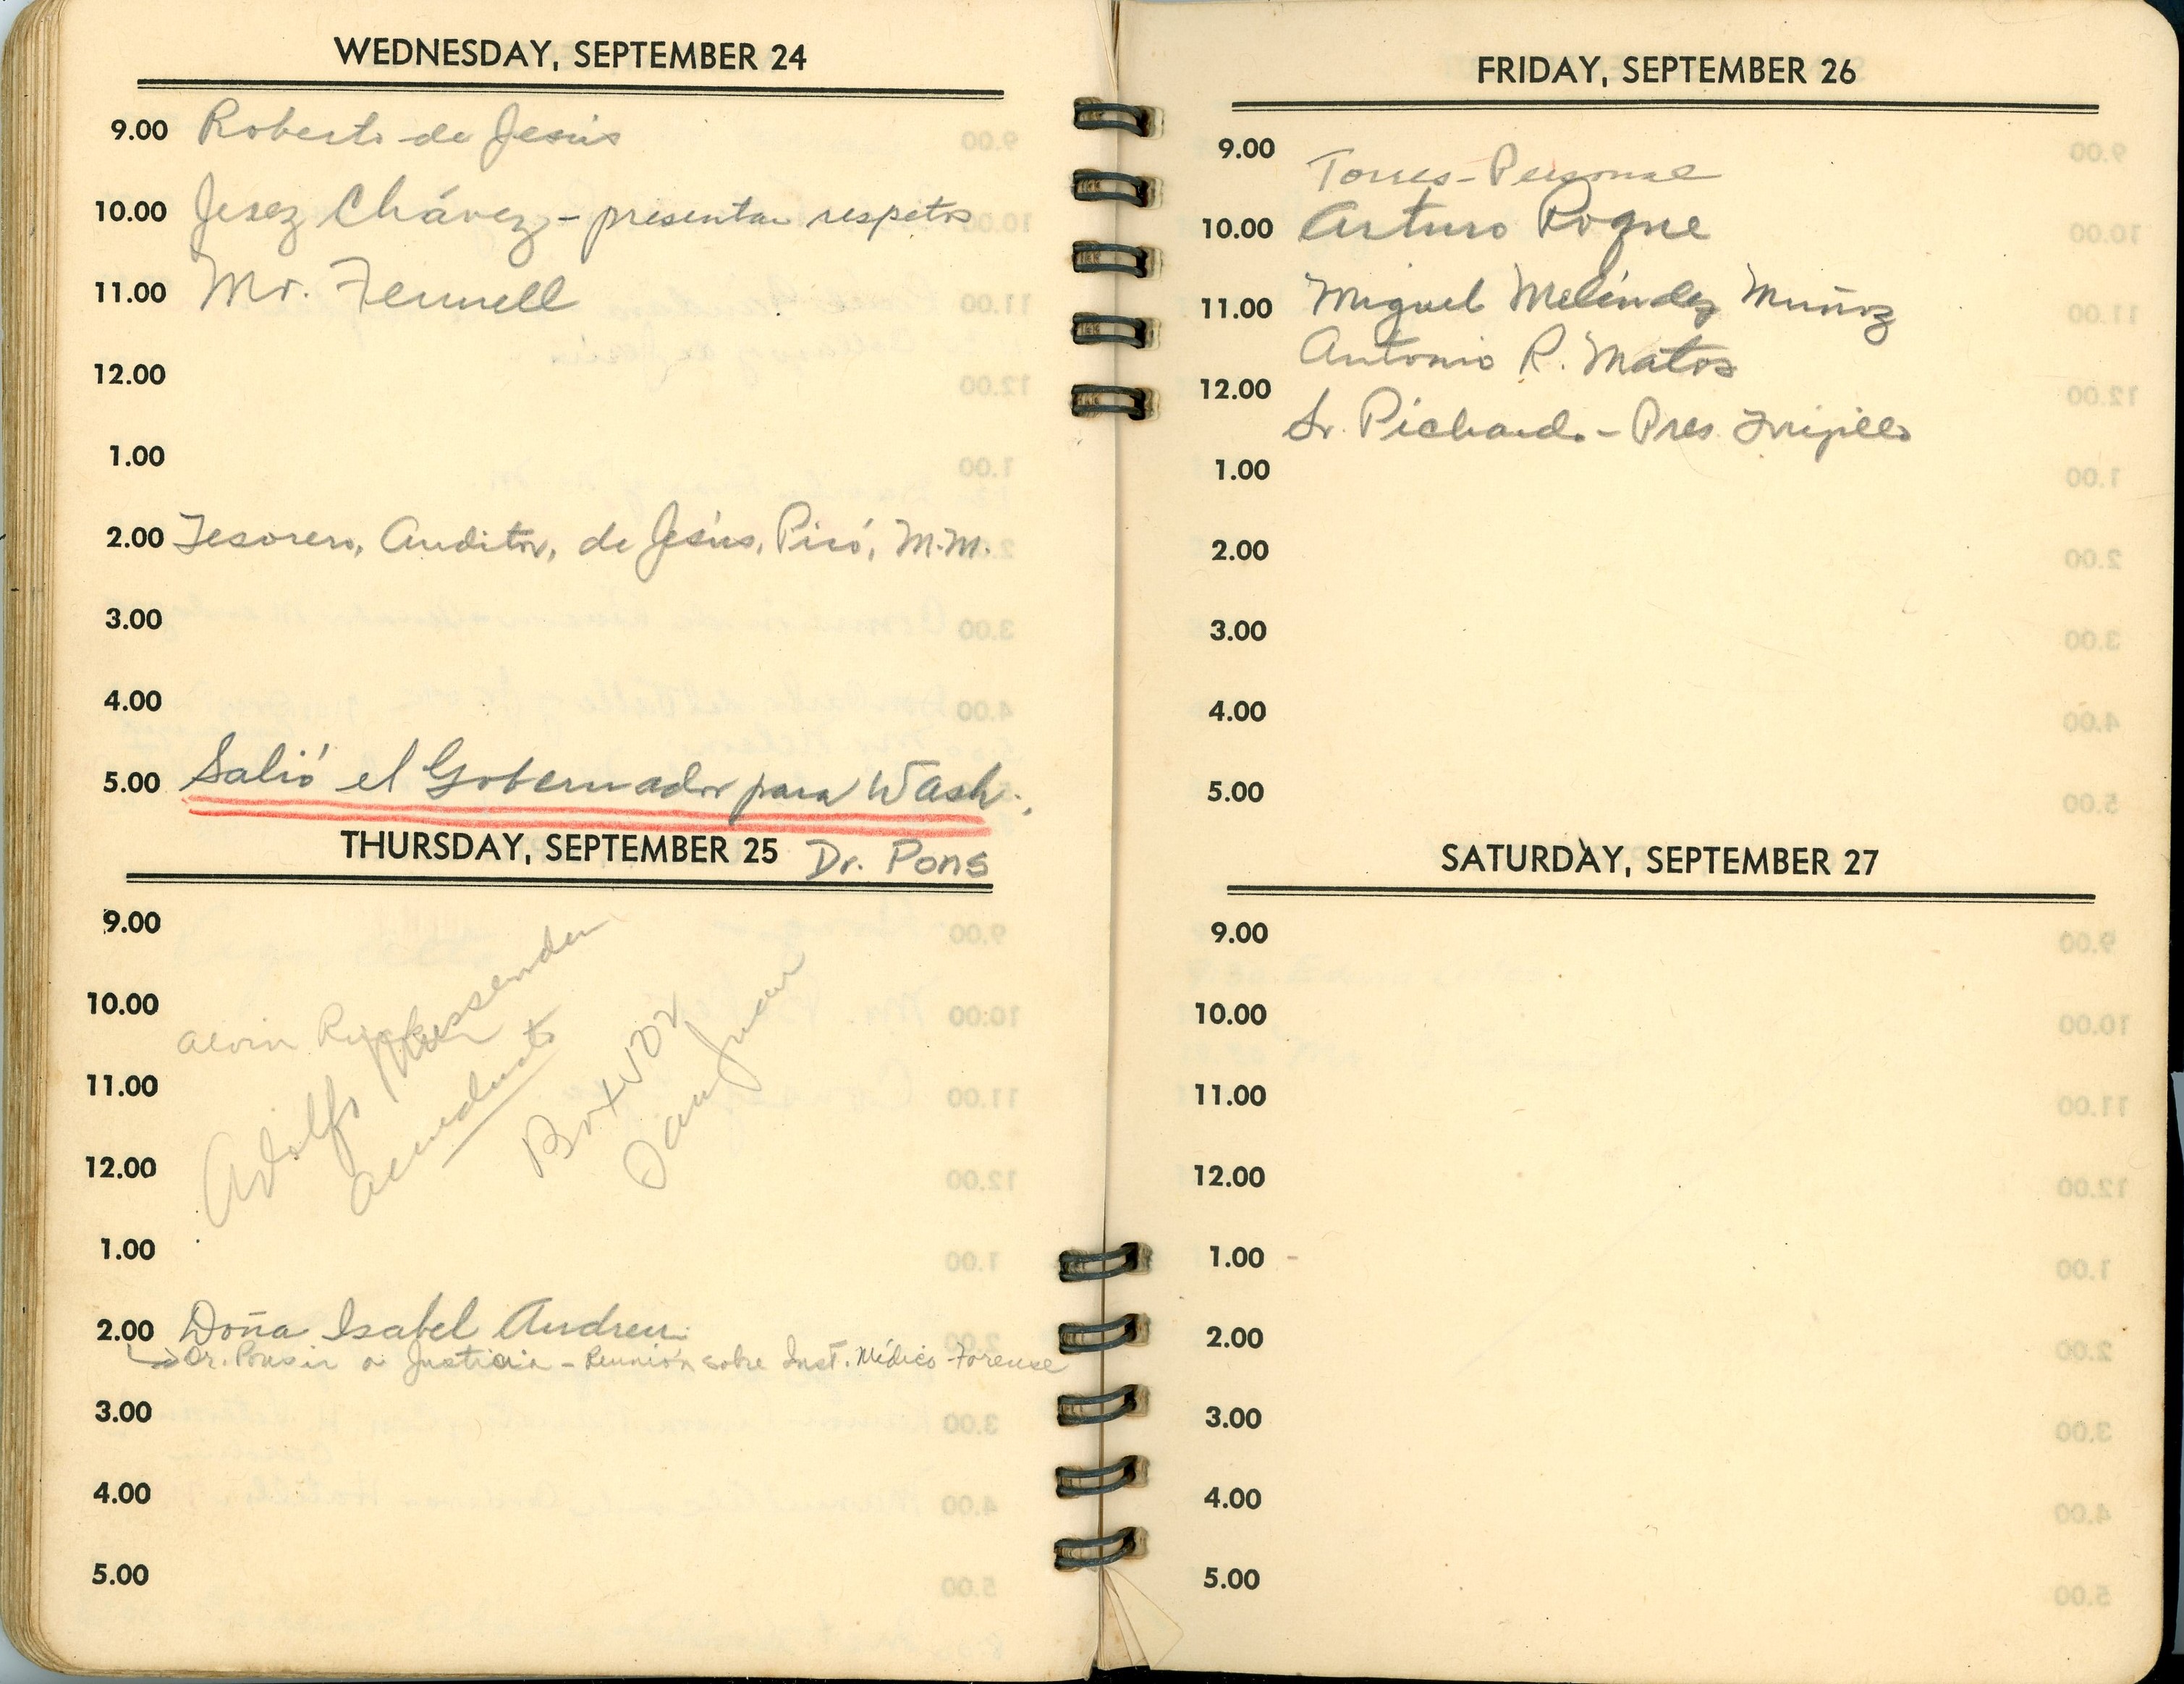 WEDNESDAY, SEPTEMBER 24
9.00 Roberto de Jesús
10.00 Jerez Chávez - presentar respetos
11.00 Mr. Fennell
12.00
1.00
2.00 Tesorero, Auditor, de Jesús, Picó, M.M.
3.00
4.00
5.00 Salió el Gobernador para Wash.
THURSDAY, SEPTEMBER 25 Dr. Pons
9.00
10.00
Alvin
11.00
Adolfo
Acueducto
Box
San Juan
12.00
1.00
2.00 Doña Isabel Andreu
Dr. Pons ir a Justicia - Reunión sobre Inst. Médico Forense
3.00
4.00
5.00
FRIDAY, SEPTEMBER 26
9.00
Torres - Personal
10.00 Arturo Roque
11.00 Miguel Meléndez Muñoz
Antonio R. Matos
12.00
Sr. Pichardo - Pres Trujillo
1.00
2.00
3.00
4.00
5.00
SATURDAY, SEPTEMBER 27
9.00
10.00
11.00
12.00
1.00 -
2.00
3.00
4.00
5.00